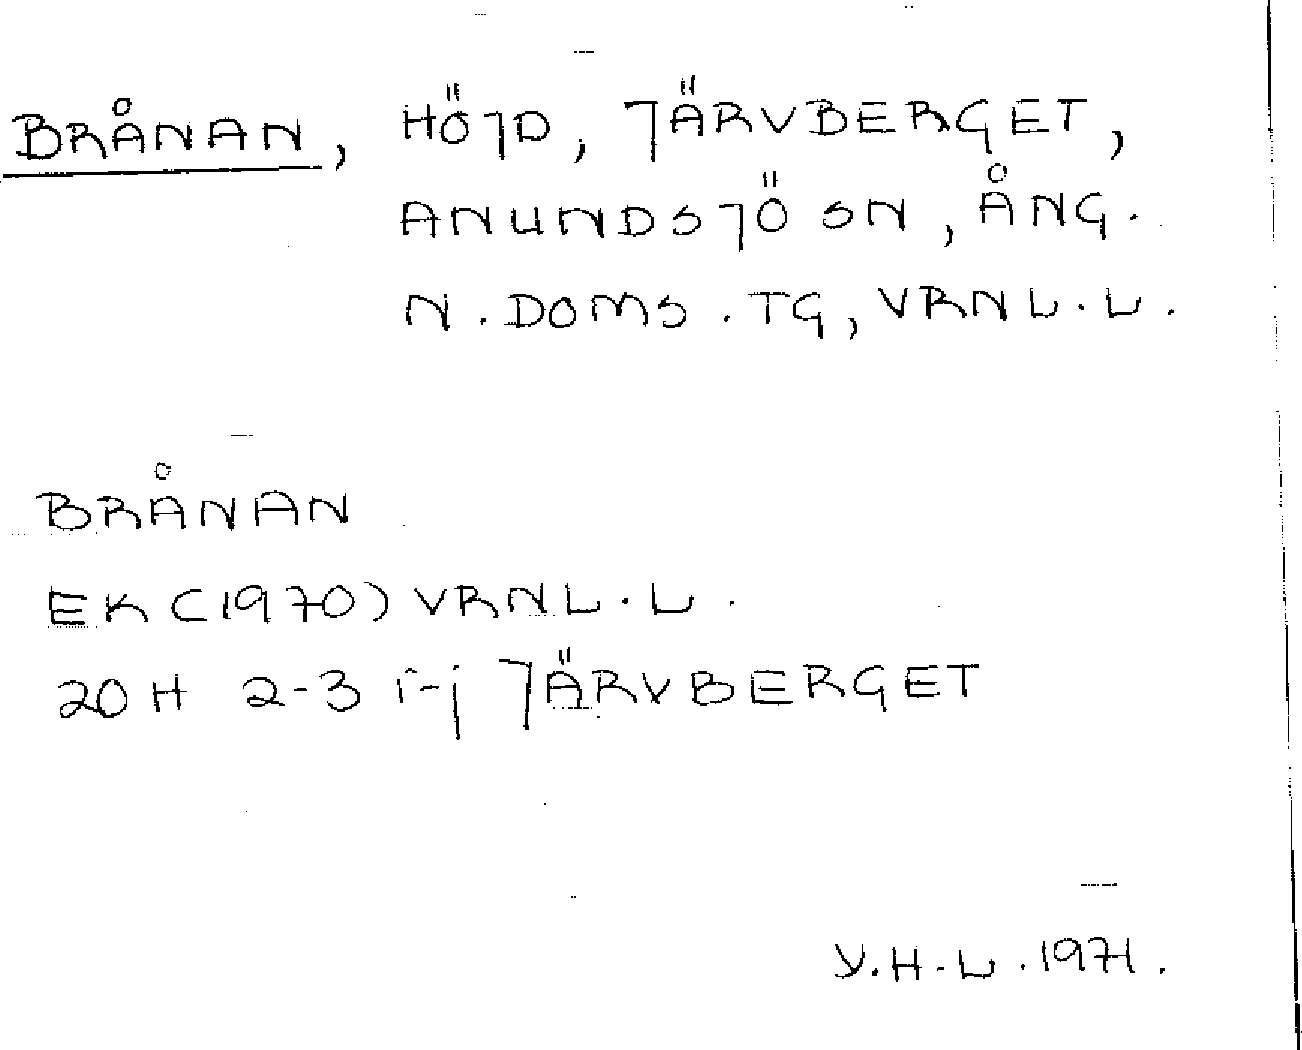 BRÅNAN, HÖJD, JÄRVBERGET,
ANUNDSJÖ SN, ÅNG.
N. DOMS. TG, VRNL. L.
BRÅNAN
EK (1970) VRNL. L.
20 H 2-3 i-j JÄRVBERGET
Y.H-L. 1971.